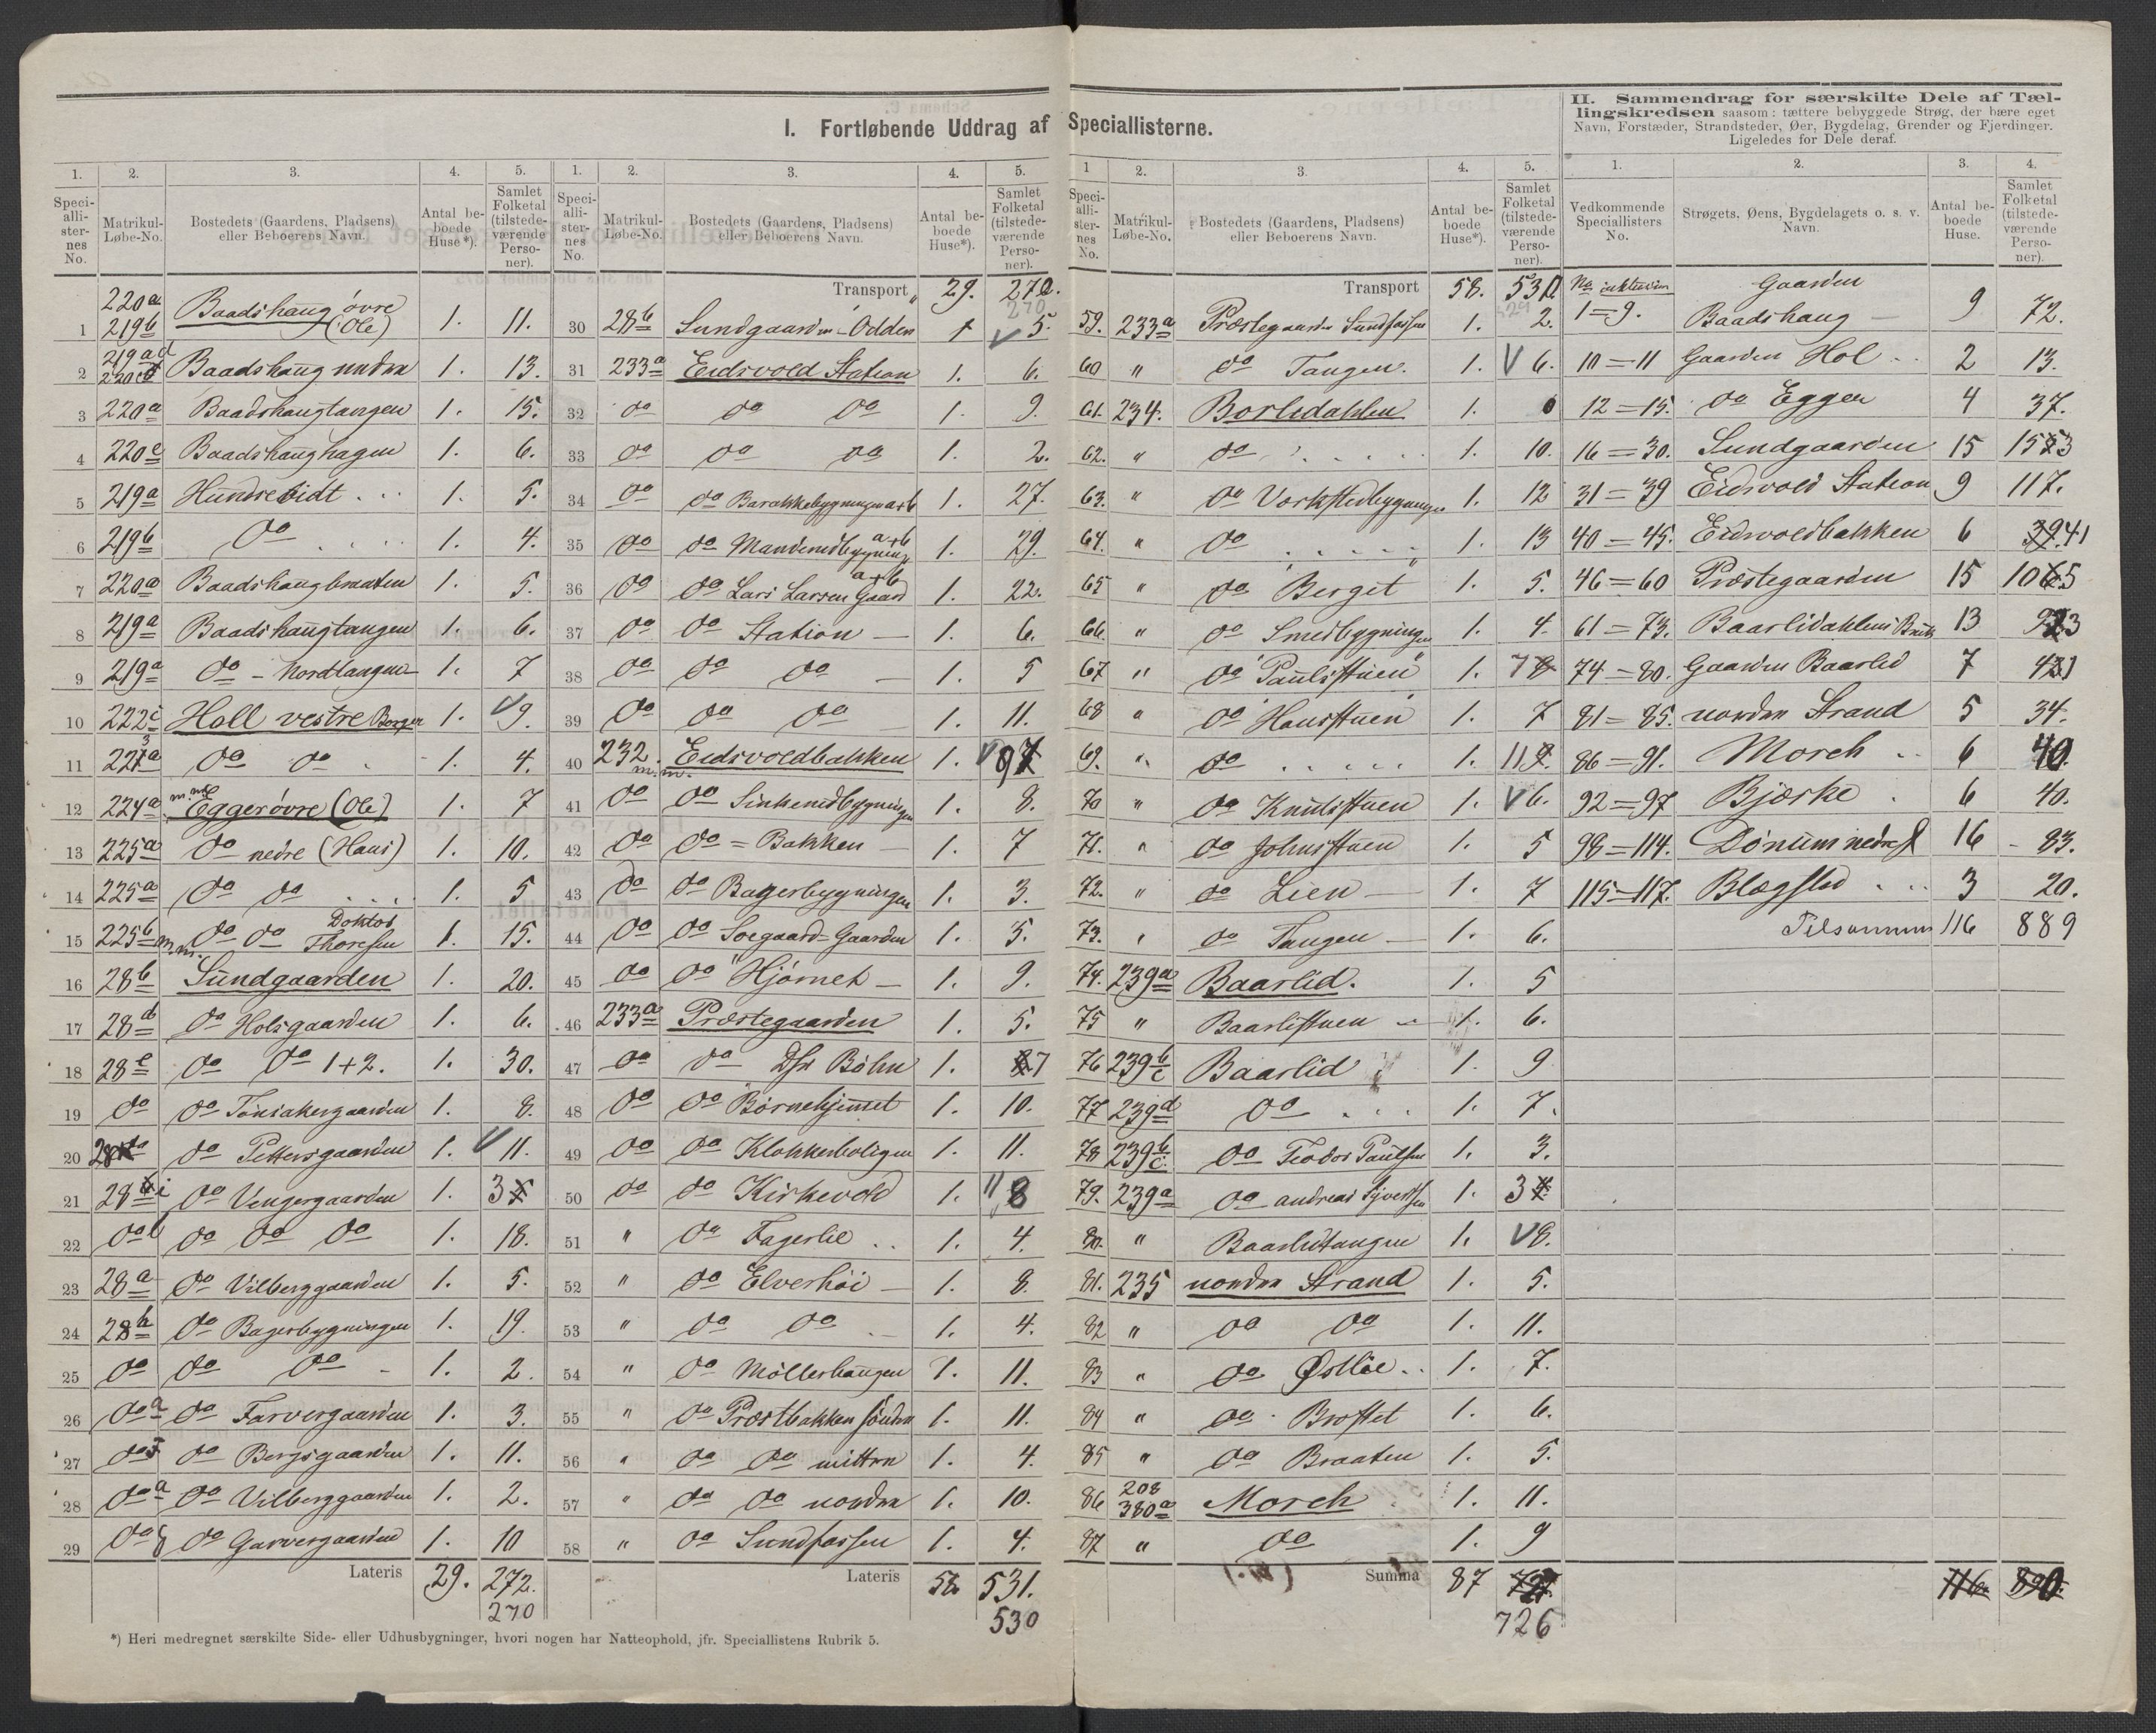 I. Fortløbende Uddrag af Speciallisterne.
1. 2. 3. 4. 5.
Speci-alli-ster-nes No. Matrikul-Løbe-No. Bostedets (Gaardens, Pladsens) eller Beboerens Navn. Antal be-boede Huse*). Samlet Folketal (tilstede-værende Perso-ner).
1 220a 219b Baadshaug övre (Ole) 1. 11.
2 219ad Baadshaug nedre 1. 13.
3 220a Baadshaugtangen 1. 15.
4 220c Baadshaughagen 1. 6.
5 219a Hundreidt 1. 5.
6 219b do 1. 4.
7 220a Baadshaugbraaten 1. 5.
8 219a Baadshaugtangen 1. 6.
9 219a do - Nordtangen 1. 7
10 222c Holl vestre Borger 1. 9.
11 do do 1. 4.
12 224a m.m. Eggen övre (Ole) 1. 7
13 225a do nedre (Hans) 1. 10.
14 225a do do 1. 5
15 225b m.m. do do Doktor Thoresen 1. 15.
16 28b Sundgaarden 1. 20.
17 28d do Holsgaarden 1. 6.
18 28e do do 1+2. 1. 30.
19 do do Tönsakergaarden 1. 8.
20 do Pettersgaarden 1. 11.
21 28i do Vengergaarden 1. 3
22 do do do do 1. 18.
23 28a do Vilberggaarden 1. 5.
24 28h do Bagerbygningen 1. 19.
25 do do do 1. 2.
26 do a do Farvergaarden 1. 3.
27 do f do Bergsgaarden 1. 11.
28 do a do Vilberggaarden 1. 2.
29 do g do Garvergaarden 1. 10
Lateris 29. 272.
270
1. 2. 3. 4. 5.
Speci-alli-ster-nes No. Matrikul-Løbe-No. Bostedets (Gaardens, Pladsens) eller Beboerens Navn. Antal be-boede Huse*). Samlet Folketal (tilstede-værende Perso-ner).
Transport 29. 272.
270
30 28b Sundgaarden - Odden 1 5.
31 233a Eidsvold Station 1. 6.
32 do do do 1. 9.
33 do do do 1. 2.
34 do do Barakkebygningen a+b 1. 27.
35 do do Mandemdbygning a+b 1. 29.
36 do do Lars Larsen Gaard a+b 1. 22.
37 do do Station 1. 6.
38 do do do 1. 5
39 do do do 1. 11.
40 232. m.m. Eidsvoldbakken 1. 9
41 do do Sinkenedbygningen 1. 8.
42 do do = Bakken 1. 7
43 do do Bagerbygningen 1. 3.
44 do do Soegaard-Gaarden 1. 5.
45 do do Hjörnet 1. 9.
46 233a Præstegaarden 1. 5.
47 do do Dsr Böhn 1. 7
48 do do Börnehjemmet 1. 10.
49 do do Klokkerboligen 1. 11.
50 do do Kirkevold 1. 8
51 " do Fagerlie 1. 4.
52 " do Elverhöi 1. 8.
53 " do do 1. 4.
54 " do Möllerhaugen 1. 11.
55 " do Præstbakken söndre 1. 11.
56 " do do mittre 1. 4.
57 " do do nordre 1. 10.
58 " do Sundfossen 1. 4.
Lateris 58 531.
530
*) Heri medregnet særskilte Side- eller Udhusbygninger, hvori nogen har Natteophold, jfr. Speciallistens Rubrik 5.
1 2. 3. 4. 5.
Speci-alli-ster-nes No. Matrikul-Løbe-No. Bostedets (Gaardens, Pladsens) eller Beboerens Navn. Antal be-boede Huse*). Samlet Folketal (tilstede-værende Perso-ner).
Transport 58. 530.
59. 233a Præstegaarden Sundfossen 1. 2.
60 " do Tangen. 1. 6.
61. 234. Borlidahlen 1.
62. " do 1. 10.
63. " do Værkstedbygningen 1. 12
64. " do 1. 13
65 " do Berget 1. 5.
66. " do Smedbygningen 1. 4.
67 " do Paulsstuen 1. 7
68 " do Hansstuen 1. 7
69. " do 1. 11
70 " do Knutsstuen 1. 6.
71. " do Johnsstuen 1. 5
72. " do Lien 1. 7
73. " do Tangen 1. 6.
74. 239a Baarlid. 1. 5
75 " Baarlistuen 1. 6.
76 239b c Baarlid 1. 9
77 239d do 1. 7.
78 239b c do Teodor Paulsen 1. 3.
79. 239a do Andreas Syvertsen 1. 3
80. " Baarlidtangen 1. 8.
81. 235 nordre Strand 1. 5.
82 " do do 1. 11.
83 " do Østlie 1. 7.
84 " do Brostet 1. 6.
85 " do Braaten 1. 5.
86 208 380a Morch 1. 11.
87 " do 1. 9
Summa 87
726
II. Sammendrag for særskilte Dele af Tæl-
lingskredsen saasom: tættere bebyggede Strøg, der bære eget
Navn, Forstæder, Strandsteder, Øer, Bygdelag, Grender og Fjerdinger.
Ligeledes for Dele deraf.
1. 2. 3. 4.
Vedkommende Speciallisters No. Strøgets, Øens, Bygdelagets o. s. v. Navn. Antal be-boede Huse. Samlet Folketal (tilstede-værende Perso-ner).
No inklusive Gaarden
1=9. Baadshaug 9 72.
10=11 Gaarden Hol 2 13.
12=15. do Eggen 4 37.
16=30. Sundgaarden 15 153
31=39 Eidsvold Station 9 117.
40=45. Eidsvoldbakken 6 41
46=60 Præstegaarden 15 105
61=73. Baarlidahlens Brug 13 93
74=80. Gaarden Baarlid 7 41
81=85. nordre Strand 5 34.
86=91. Morch 6 40.
92=97 Bjørke 6 40.
98=114. Dönum nedre 16 83.
115=117. Blegstad 3 20.
Tilsammen 116 889
116 890